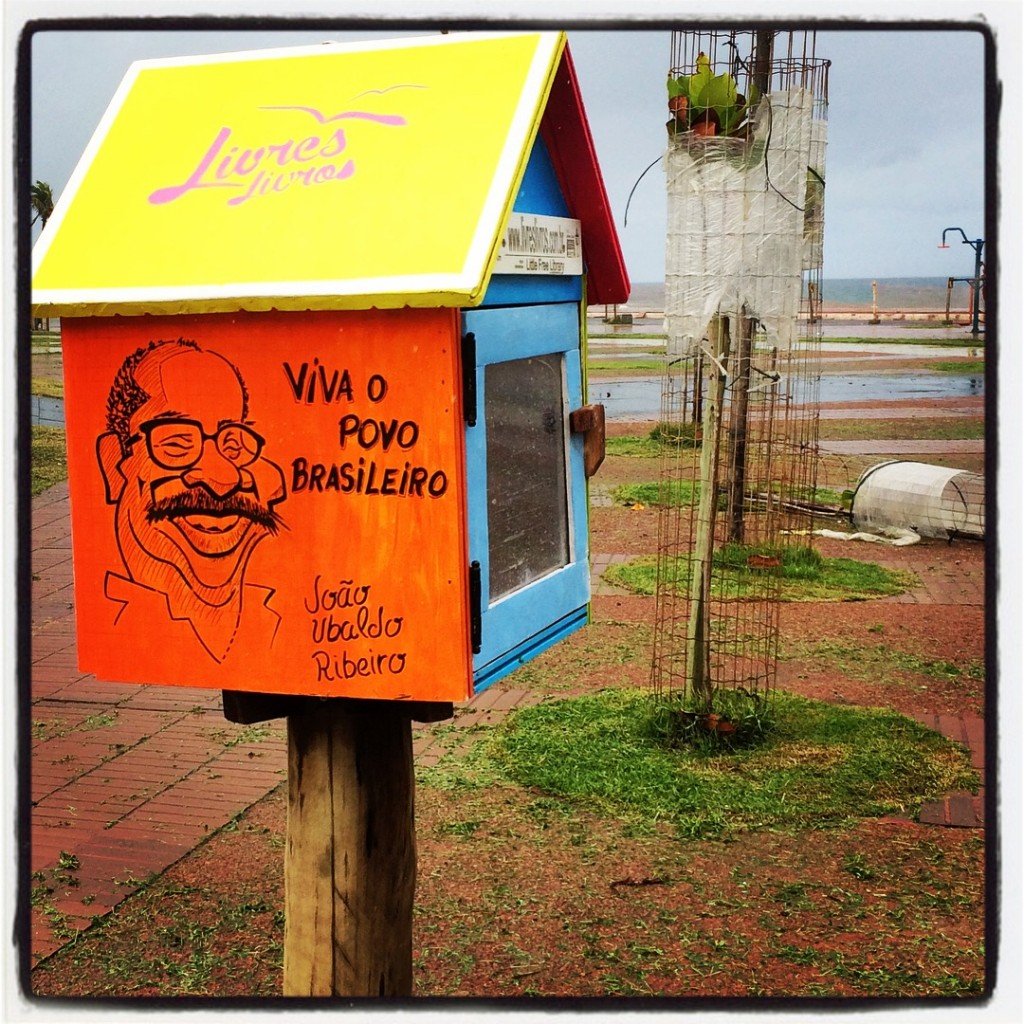 Livres
Livros
www.livreslivros.com.br
Little Free Library
VIVA O
POVO
BRASILEIRO
João
Ubaldo
Ribeiro